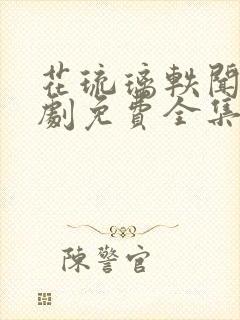 花琉璃軼聞
劇免費全集
陳警官